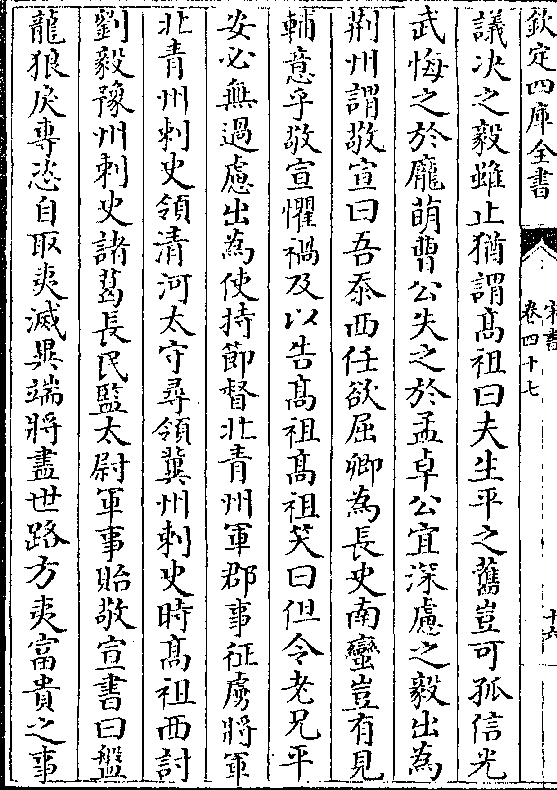 欽定四庫全書
宋書
卷四十七
十六
議決之毅雖止猶謂高祖曰夫生平之舊豈可孤信光
武悔之於龐萌曹公失之於孟卓公宜深慮之毅出為
荆州謂敬宣曰吾忝西任欲屈卿為長史南蠻豈有見
輔意乎敬宣懼禍及以告高祖高祖笑曰但令老兄平
安必無過慮出為使持節督北青州軍郡事征虜將軍
北青州刺史領清河太守尋領冀州刺史時高祖西討
劉毅豫州刺史諸葛長民監太尉軍事貽敬宣書曰盤
龍狼戾專恣自取夷滅異端將盡世路方夷富貴之事